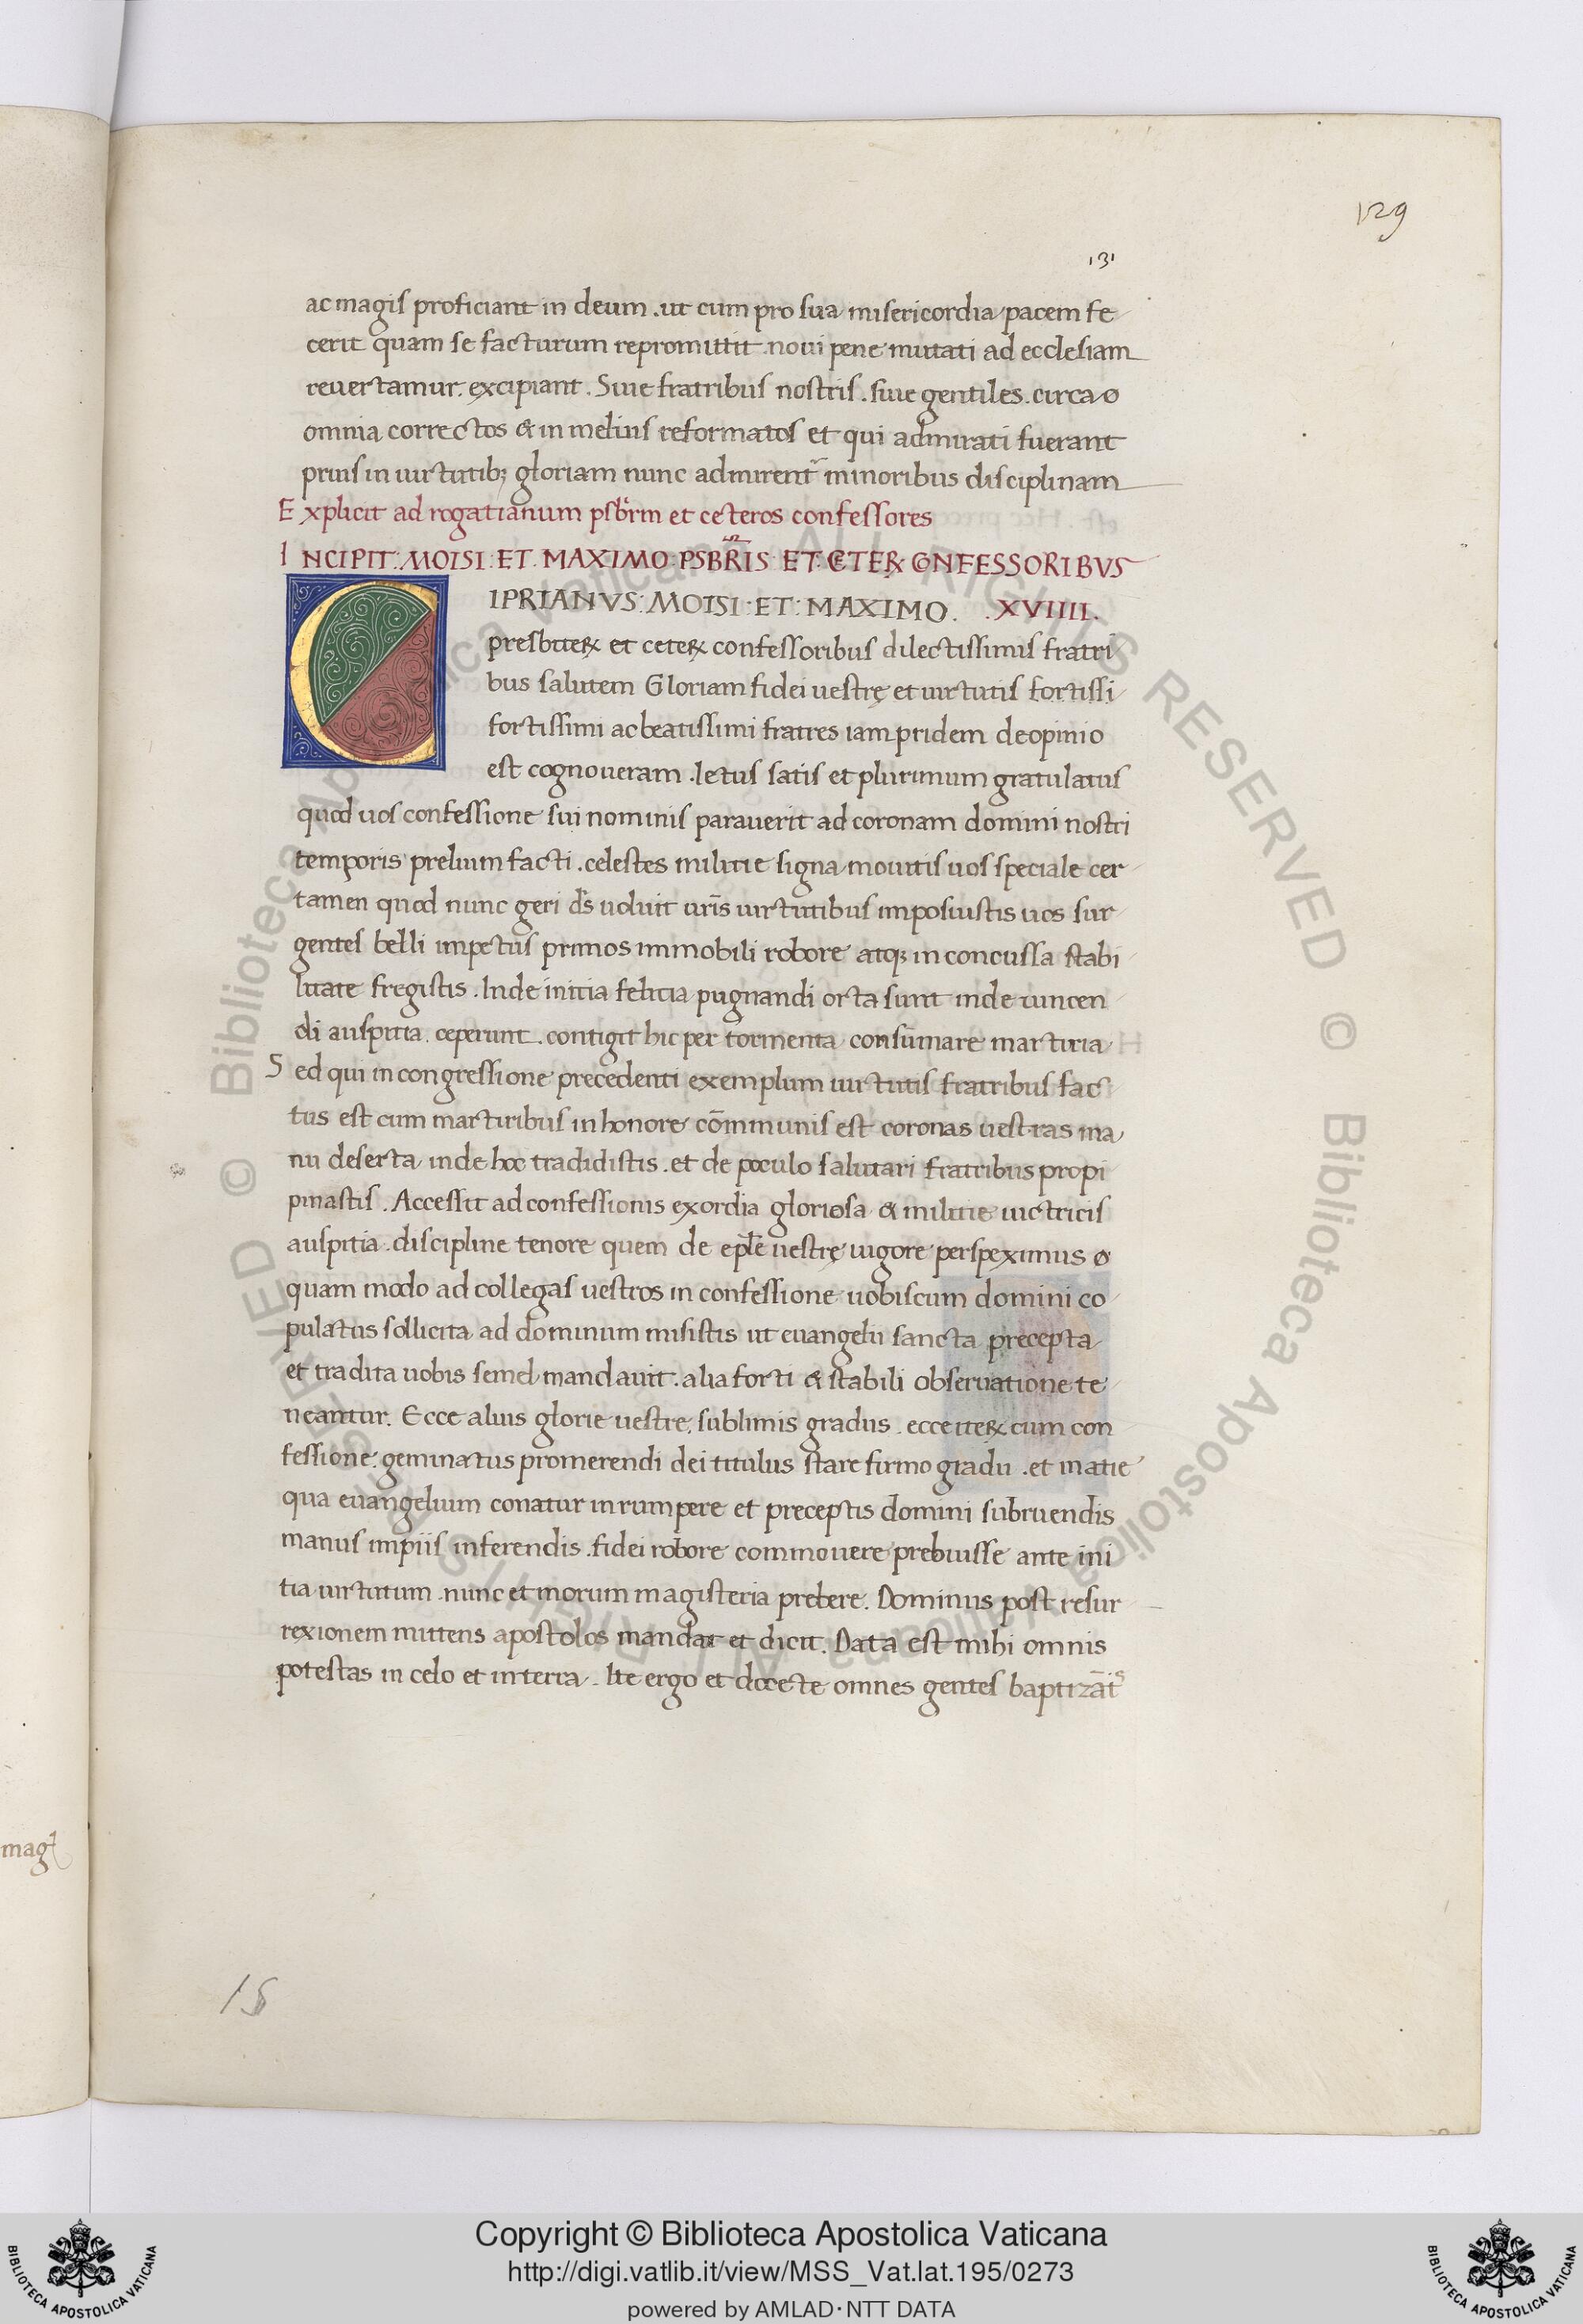 129
131
ac magis proficiant in deum . ut cum pro sua misericordia pacem fe
cerit quam se facturum repromittit . noui pene mutati ad ecclesiam
reuertamur . excipiant . Siue fratribus nostris . siue gentiles . circa o
omnia correctos & in melius reformatos et qui admirati fuerant
prius in uirtutib; gloriam nunc admirent̄ minoribus disciplinam
Explicit ad rogatianum psb̄rm et ceteros confessores
INCIPIT: MOISI: ET: MAXIMO: PSBR̄IS ET: CETEꝜ CONFESSORIBVS
CIPRIANVS: MOISI: ET: MAXIMO. .XVIIII.
presbiteꝝ et ceteꝝ confessoribus dilectissimis fratri
bus salutem Gloriam fidei uestrę et uirtutis fortissi
fortissimi ac beatissimi fratres iam pridem de opinio
est cognoueram . letus satis et plurimum gratulatus
quod uos confessione sui nominis parauerit ad coronam domini nostri
temporis prelium facti . celestes militie signa mouitis uos speciale cer
tamen quod nunc geri d̄s uoluit ur̄is uirtutibus imposuistis uos sur
gentes belli impetus primos immobili robore atq; in concussa stabi
litate fregistis . Inde initia felicia pugnandi orta sunt inde uincen
di auspitia ceperunt . contigit hic per tormenta consūmare martiria
Sed qui in congressione precedenti exemplum uirtutis fratribus fac
tus est cum martiribus in honore cōmmunis est coronas uestras ma
nu deserta inde hoc tradidistis . et de poculo salutari fratribus propi
pinastis . Accessit ad confessionis exordia gloriosa & militie uictricis
auspitia . discipline tenore quem de ep̄le uestrę uigore perspeximus o
quam modo ad collegas uestros in confessione uobiscum domini co
pulatus sollicita ad dominum misistis ut euangelii sancta precepta
et tradita uobis semel mandauit . alia forti & stabili obseruatione te
neantur . Ecce alius glorie uestre sublimis gradus . ecce iteꝝ cum con
fessione geminatus promerendi dei titulus stare firmo gradu . et in atie
qua euangelium conatur inrumpere et preceptis domini subruendis
manus impiis inferendis . fidei robore commouere prebuisse ante ini
tia uirtutum . nunc et morum magisteria prebere . Dominus post resur
rexionem mittens apostolos mandat et dicit . Data est mihi omnis
potestas in celo et in terra . Ite ergo et docete omnes gentes baptizāt
mag
15
© Biblioteca Apostolica Vaticana ALL RIGHTS RESERVED © Biblioteca Apostolica Vaticana ALL RIGHTS RESERVED
Copyright © Biblioteca Apostolica Vaticana
http://digi.vatlib.it/view/MSS_Vat.lat.195/0273
powered by AMLAD·NTT DATA
BIBLIOTECA APOSTOLICA VATICANA
BIBLIOTECA APOSTOLICA VATICANA